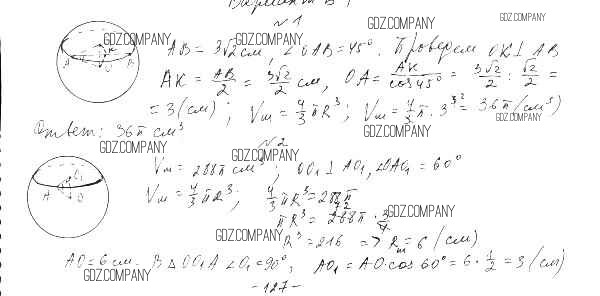 Вариант Б 1
№ 1
GDZ.COMPANY
GDZ.COMPANY
GDZ.COMPANY GDZ.COMPANY
AB = 3√2 см, ∠OAB = 45°. Проведем OK ⊥ AB
AK = AB/2 = 3√2/2 см, OA = AK/cos45° = 3√2/2 : √2/2 =
= 3 (см); Vш = 4/3 πR³; Vш = 4/3 π · 3³ = 36π (см³)
GDZ.COMPANY
Ответ: 36π см³
GDZ.COMPANY
GDZ.COMPANY
№ 2
GDZ.COMPANY
Vш = 288π см³, OO₁ ⊥ AO₁, ∠OAO₁ = 60°
Vш = 4/3 πR³; 4/3 πR³ = 288π
πR³ = 288π · 3/4
GDZ.COMPANY
GDZ.COMPANY
R³ = 216 => Rш = 6 (см)
AO = 6 см. В △ OO₁A ∠O₁ = 90°, AO₁ = AO·cos 60° = 6 · 1/2 = 3 (см)
GDZ.COMPANY
- 127 -